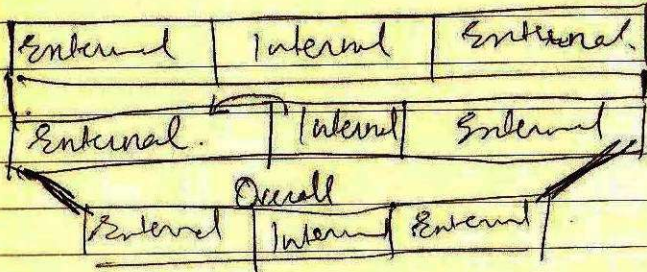 External Internal External.
External. Internal External
Overall
External Internal External